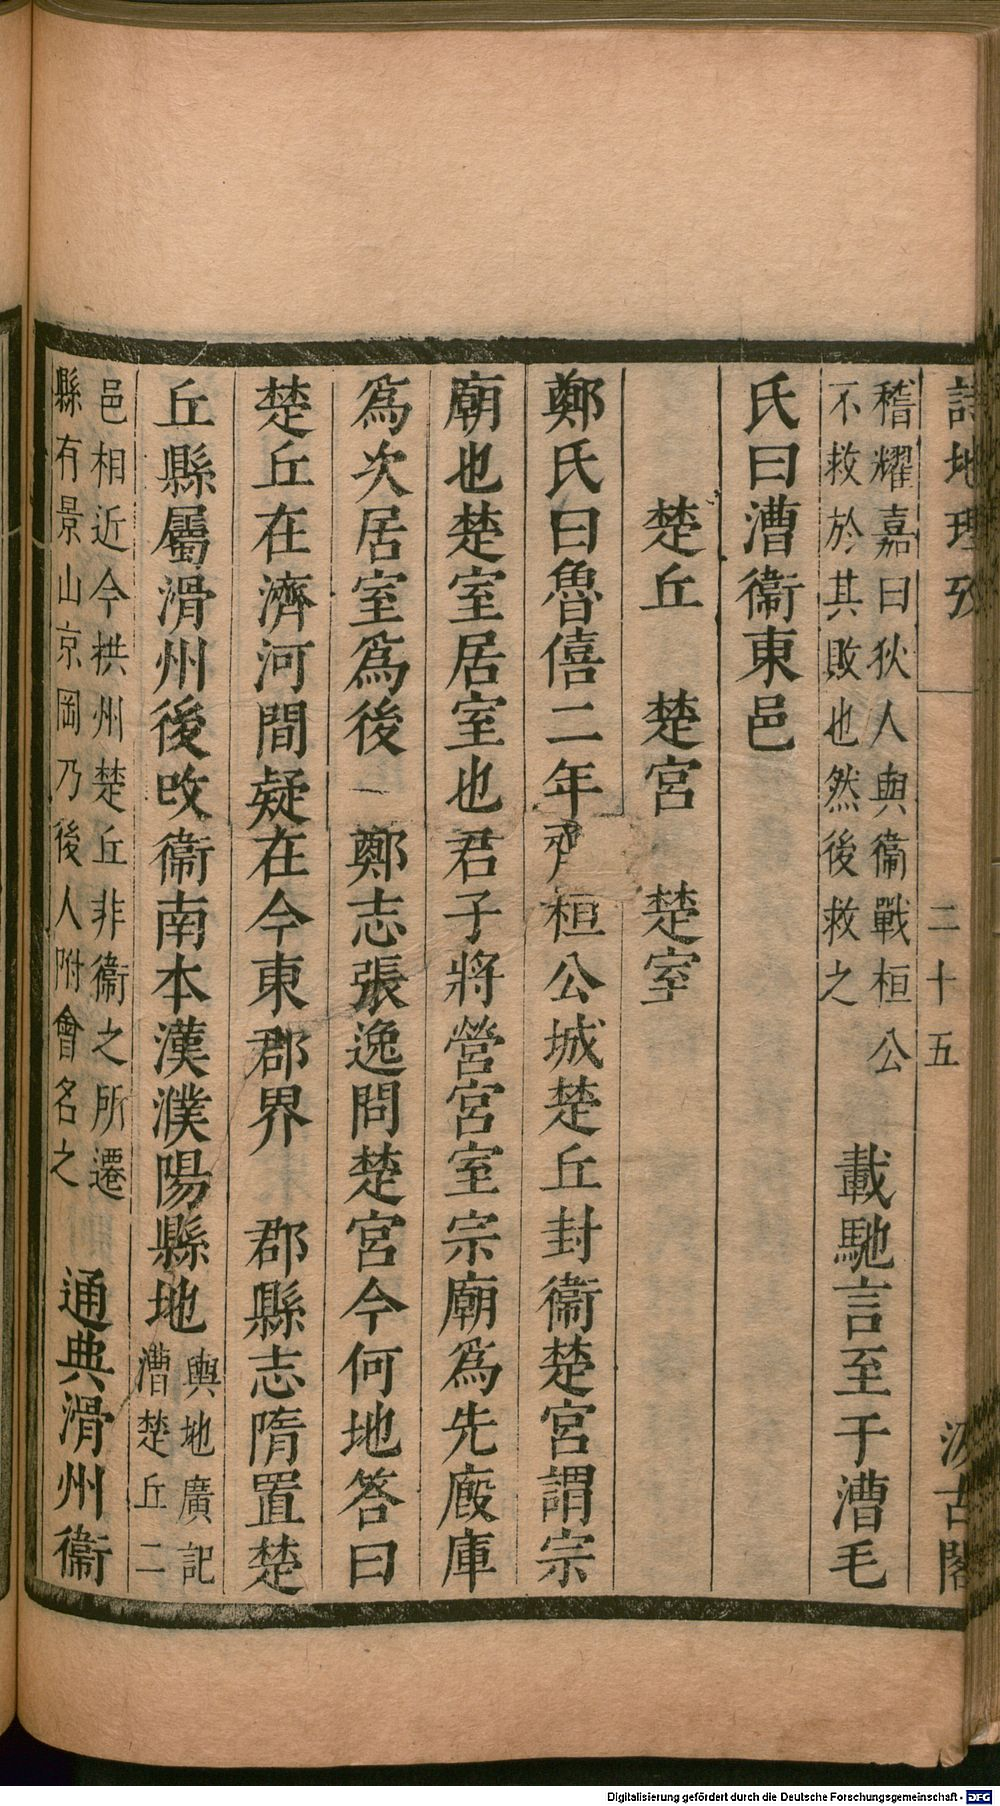 詩地理攷 二十五 汲古閣
稽耀嘉曰狄人與衞戰桓公
不救於其敗也然後救之
載馳言至于漕毛
氏曰漕衞東邑
楚丘 楚宮 楚室
鄭氏曰魯僖二年齊桓公城楚丘封衞楚宮謂宗
廟也楚室居室也君子將營宮室宗廟爲先廄庫
爲次居室爲後 鄭志張逸問楚宮今何地答曰
楚丘在濟河間疑在今東郡界 郡縣志隋置楚
丘縣屬滑州後改衞南本漢濮陽縣地
輿地廣記
漕楚丘二
邑相近今拱州楚丘非衞之所遷
縣有景山京岡乃後人附會名之
通典滑州衞
Digitalisierung gefördert durch die Deutsche Forschungsgemeinschaft - DFG